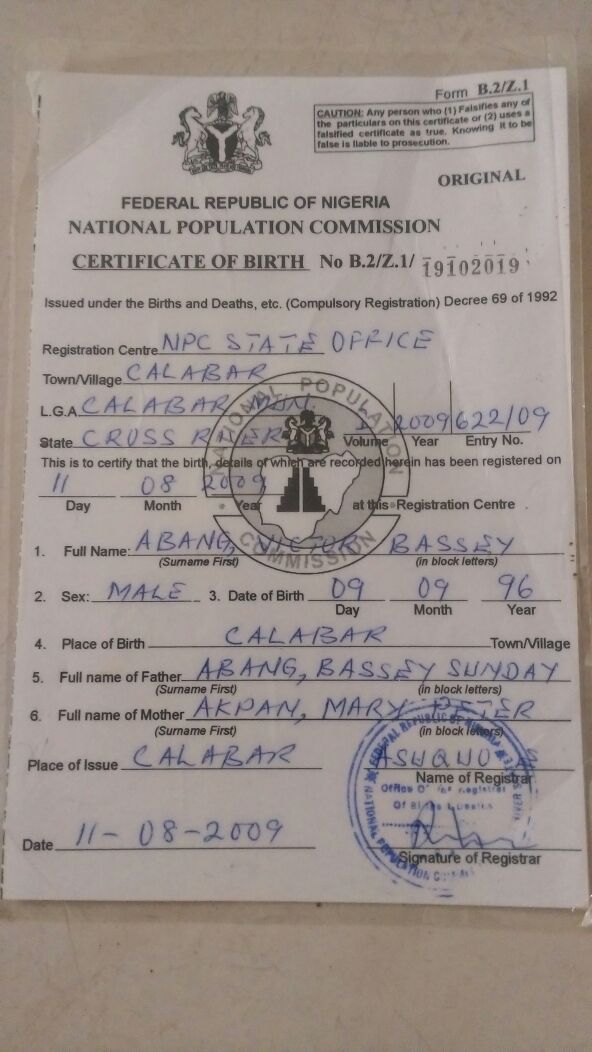 Form B.2/Z.1
CAUTION: Any person who (1) Falsifies any of
the particulars on this certificate or (2) uses a
falsified certificate as true. Knowing it to be
false is liable to prosecution.
ORIGINAL
FEDERAL REPUBLIC OF NIGERIA
NATIONAL POPULATION COMMISSION
CERTIFICATE OF BIRTH No B.2/Z.1/ 19102019
Issued under the Births and Deaths, etc. (Compulsory Registration) Decree 69 of 1992
Registration Centre NPC STATE OFFICE
Town/Village CALABAR
L.G.A CALABAR MUN.
State CROSS RIVER Volume 1 Year 2009 Entry No. 622/09
This is to certify that the birth, details of which are recorded herein has been registered on
11 08 2009
Day Month Year at this Registration Centre
NATIONAL POPULATION COMMISSION
1. Full Name: ABANG, VICTOR BASSEY
(Surname First) (in block letters)
2. Sex: MALE 3. Date of Birth 09 09 96
Day Month Year
4. Place of Birth CALABAR Town/Village
5. Full name of Father ABANG, BASSEY SUNDAY
(Surname First) (in block letters)
6. Full name of Mother AKPAN, MARY PETER
(Surname First) (in block letters)
Place of Issue CALABAR ASUQUO
Name of Registrar
FEDERAL REPUBLIC OF NIGERIA
Office Of the Registrar
Of Births & Deaths
NATIONAL POPULATION
Date 11-08-2009
Signature of Registrar